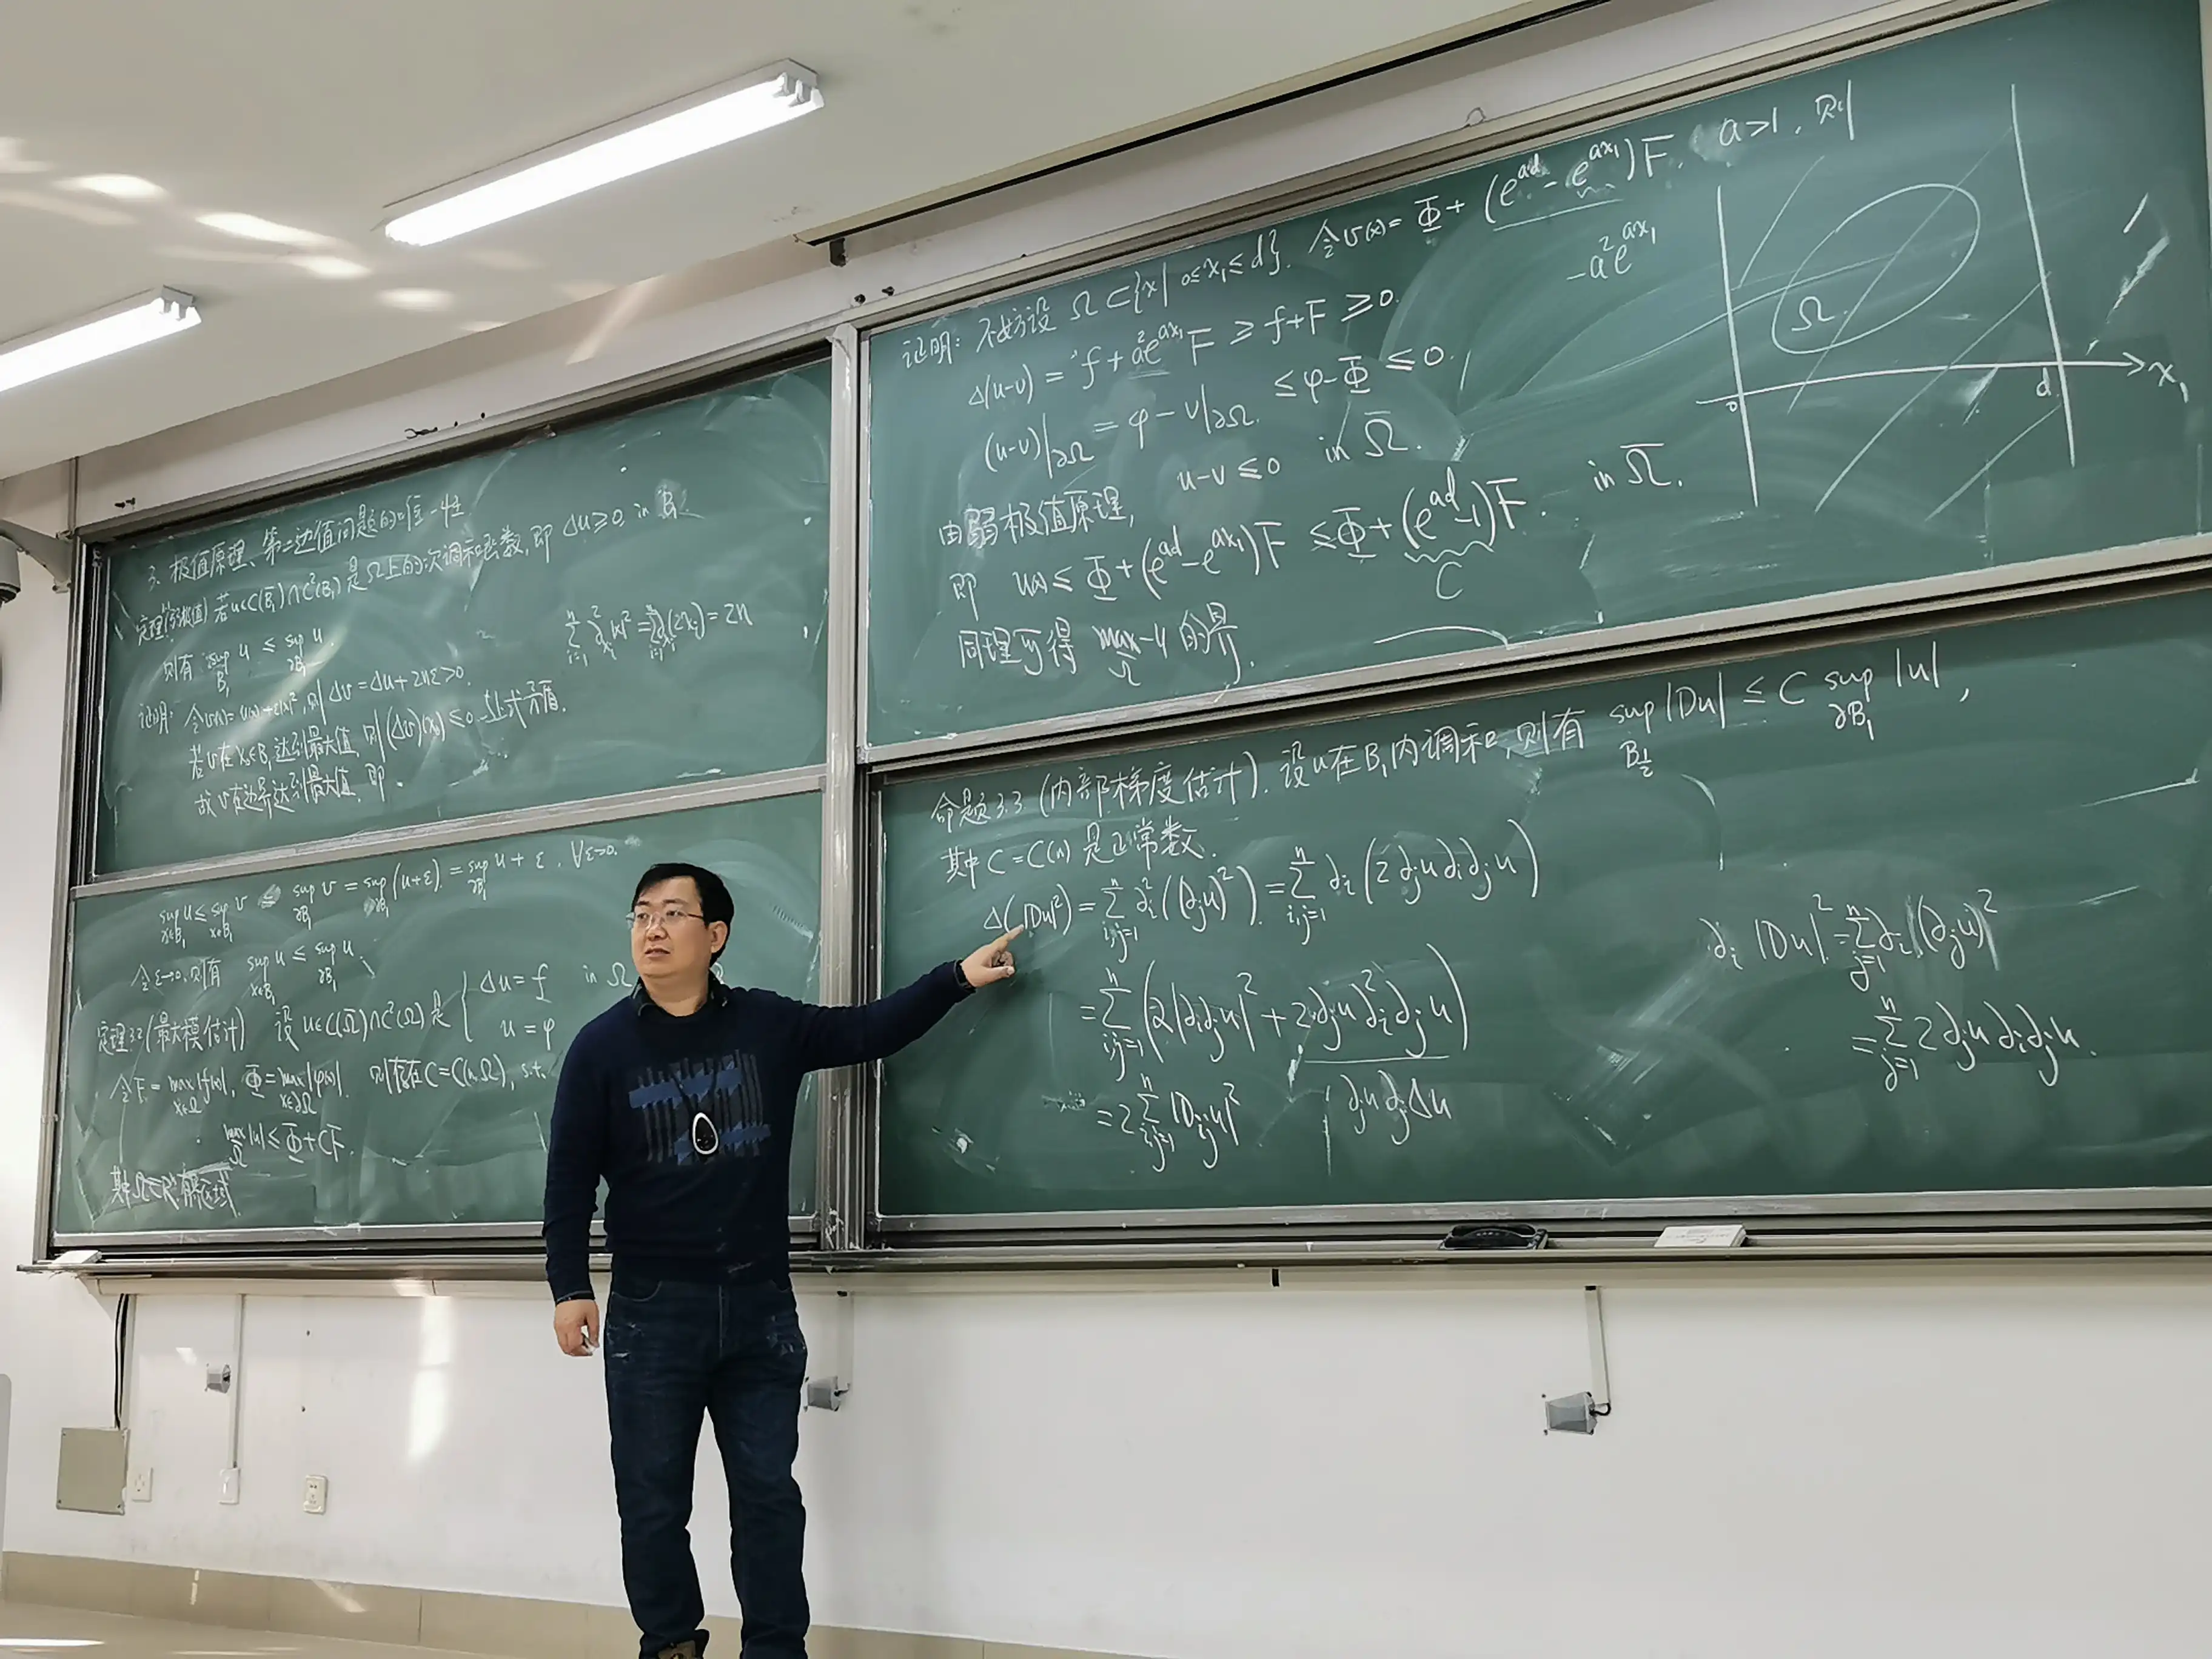 3. 极值原理、第二边值问题的唯一性
定理(弱极值) 若u∈C(B̄₁)∩C²(B₁)是Ω上的次调和函数, 即 Δu≥0 in B₁
则有 sup_{B₁} u ≤ sup_{∂B₁} u.
Σ_{i=1}^n ∂²_{x_i}|x|² = Σ_{i=1}^n ∂_{x_i}(2x_i) = 2n
证明: 令v(x)=u(x)+ε|x|², 则 Δv=Δu+2nε>0.
若v在x₀∈B₁达到最大值, 则(Δv)(x₀)≤0 与上式矛盾.
故v在边界达到最大值, 即
sup_{x∈B₁} u ≤ sup_{x∈B₁} v = sup_{∂B₁} v = sup_{∂B₁}(u+ε) = sup_{∂B₁} u + ε, ∀ε>0.
令ε→0, 则有 sup_{x∈B₁} u ≤ sup_{∂B₁} u.
定理3.2(最大模估计) 设 u∈C(Ω̄)∩C²(Ω)是 { Δu=f in Ω
u=φ
令F=max_{x∈Ω̄}|f(x)|, Φ=max_{x∈∂Ω}|φ(x)|. 则存在C=C(n,Ω), s.t.
max_{Ω̄}|u| ≤ Φ+CF.
其中Ω⊂Rⁿ有界区域
证明: 不妨设 Ω⊂{x| 0≤x₁≤d}. 令v(x)=Φ+(e^{ad}-e^{ax₁})F, a>1, 则
-a²e^{ax₁}
Δ(u-v) = f+a²e^{ax₁}F ≥ f+F ≥ 0.
(u-v)|_{∂Ω} = φ-v|_{∂Ω} ≤ φ-Φ ≤ 0.
由弱极值原理, u-v≤0 in Ω̄.
即 u(x) ≤ Φ+(e^{ad}-e^{ax₁})F ≤ Φ+(e^{ad}-1)F. in Ω̄.
C
同理可得 max_{Ω̄} -u 的界.
Ω
0 d x₁
命题3.3 (内部梯度估计). 设u在B₁内调和, 则有 sup_{B_{1/2}} |Du| ≤ C sup_{∂B₁} |u|,
其中 C=C(n) 是正常数.
Δ(|Du|²) = Σ_{i,j=1}^n ∂_i²((∂_j u)²) = Σ_{i,j=1}^n ∂_i(2∂_j u ∂_i∂_j u)
= Σ_{i,j=1}^n (2|∂_i∂_j u|² + 2∂_j u ∂_i²∂_j u)
= 2Σ_{i,j=1}^n |D_{ij}u|²
∂_j u ∂_j Δu
∂_i |Du|² = Σ_{j=1}^n ∂_i (∂_j u)²
= Σ_{j=1}^n 2∂_j u ∂_i∂_j u.